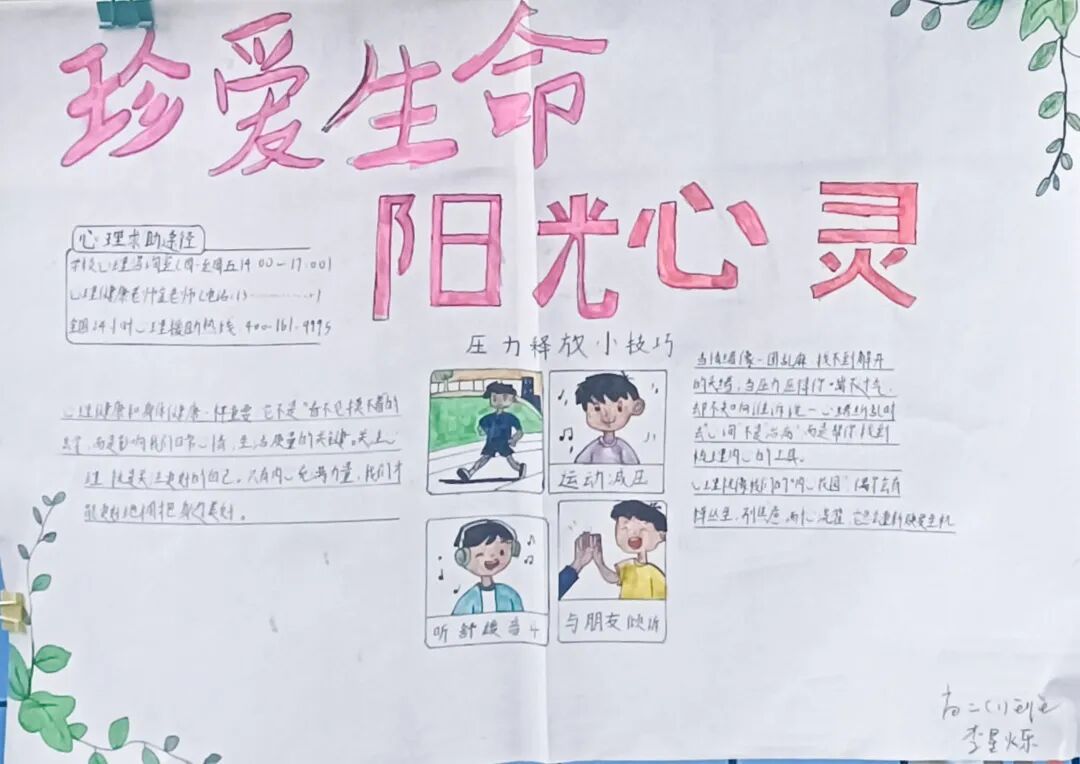 珍爱生命
阳光心灵
心理求助途径
学校心理咨询室(周一至周五14:00-17:00)
心理健康老师 老师(电话:13············)
全国24小时心理援助热线:400-161-9995
压力释放小技巧
运动减压
听舒缓音乐
与朋友倾诉
心理健康和身体健康一样重要,它不是"看不见摸不着的
,而是影响我们日常心情、生活质量的关键。关注心
理,就是关注更好的自己。只有内心充满力量,我们才
能更好地拥抱 美好。
当情绪像一团乱麻,找不到解开
的 ,当压力压得你喘不过气,
却不知向谁诉说
不是
梳理内心的工具。
心理 我们的"内心花园",偶尔会有
杂草丛生,
高二(1)
李星烁